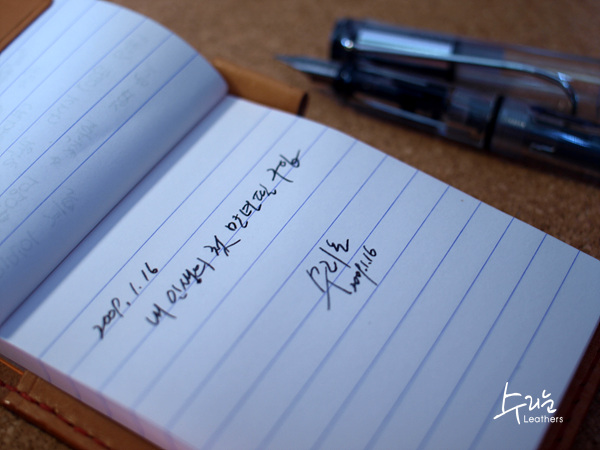 2009. 1. 16
내 인생의 첫 만년필 구입
2009.1.16
Leathers